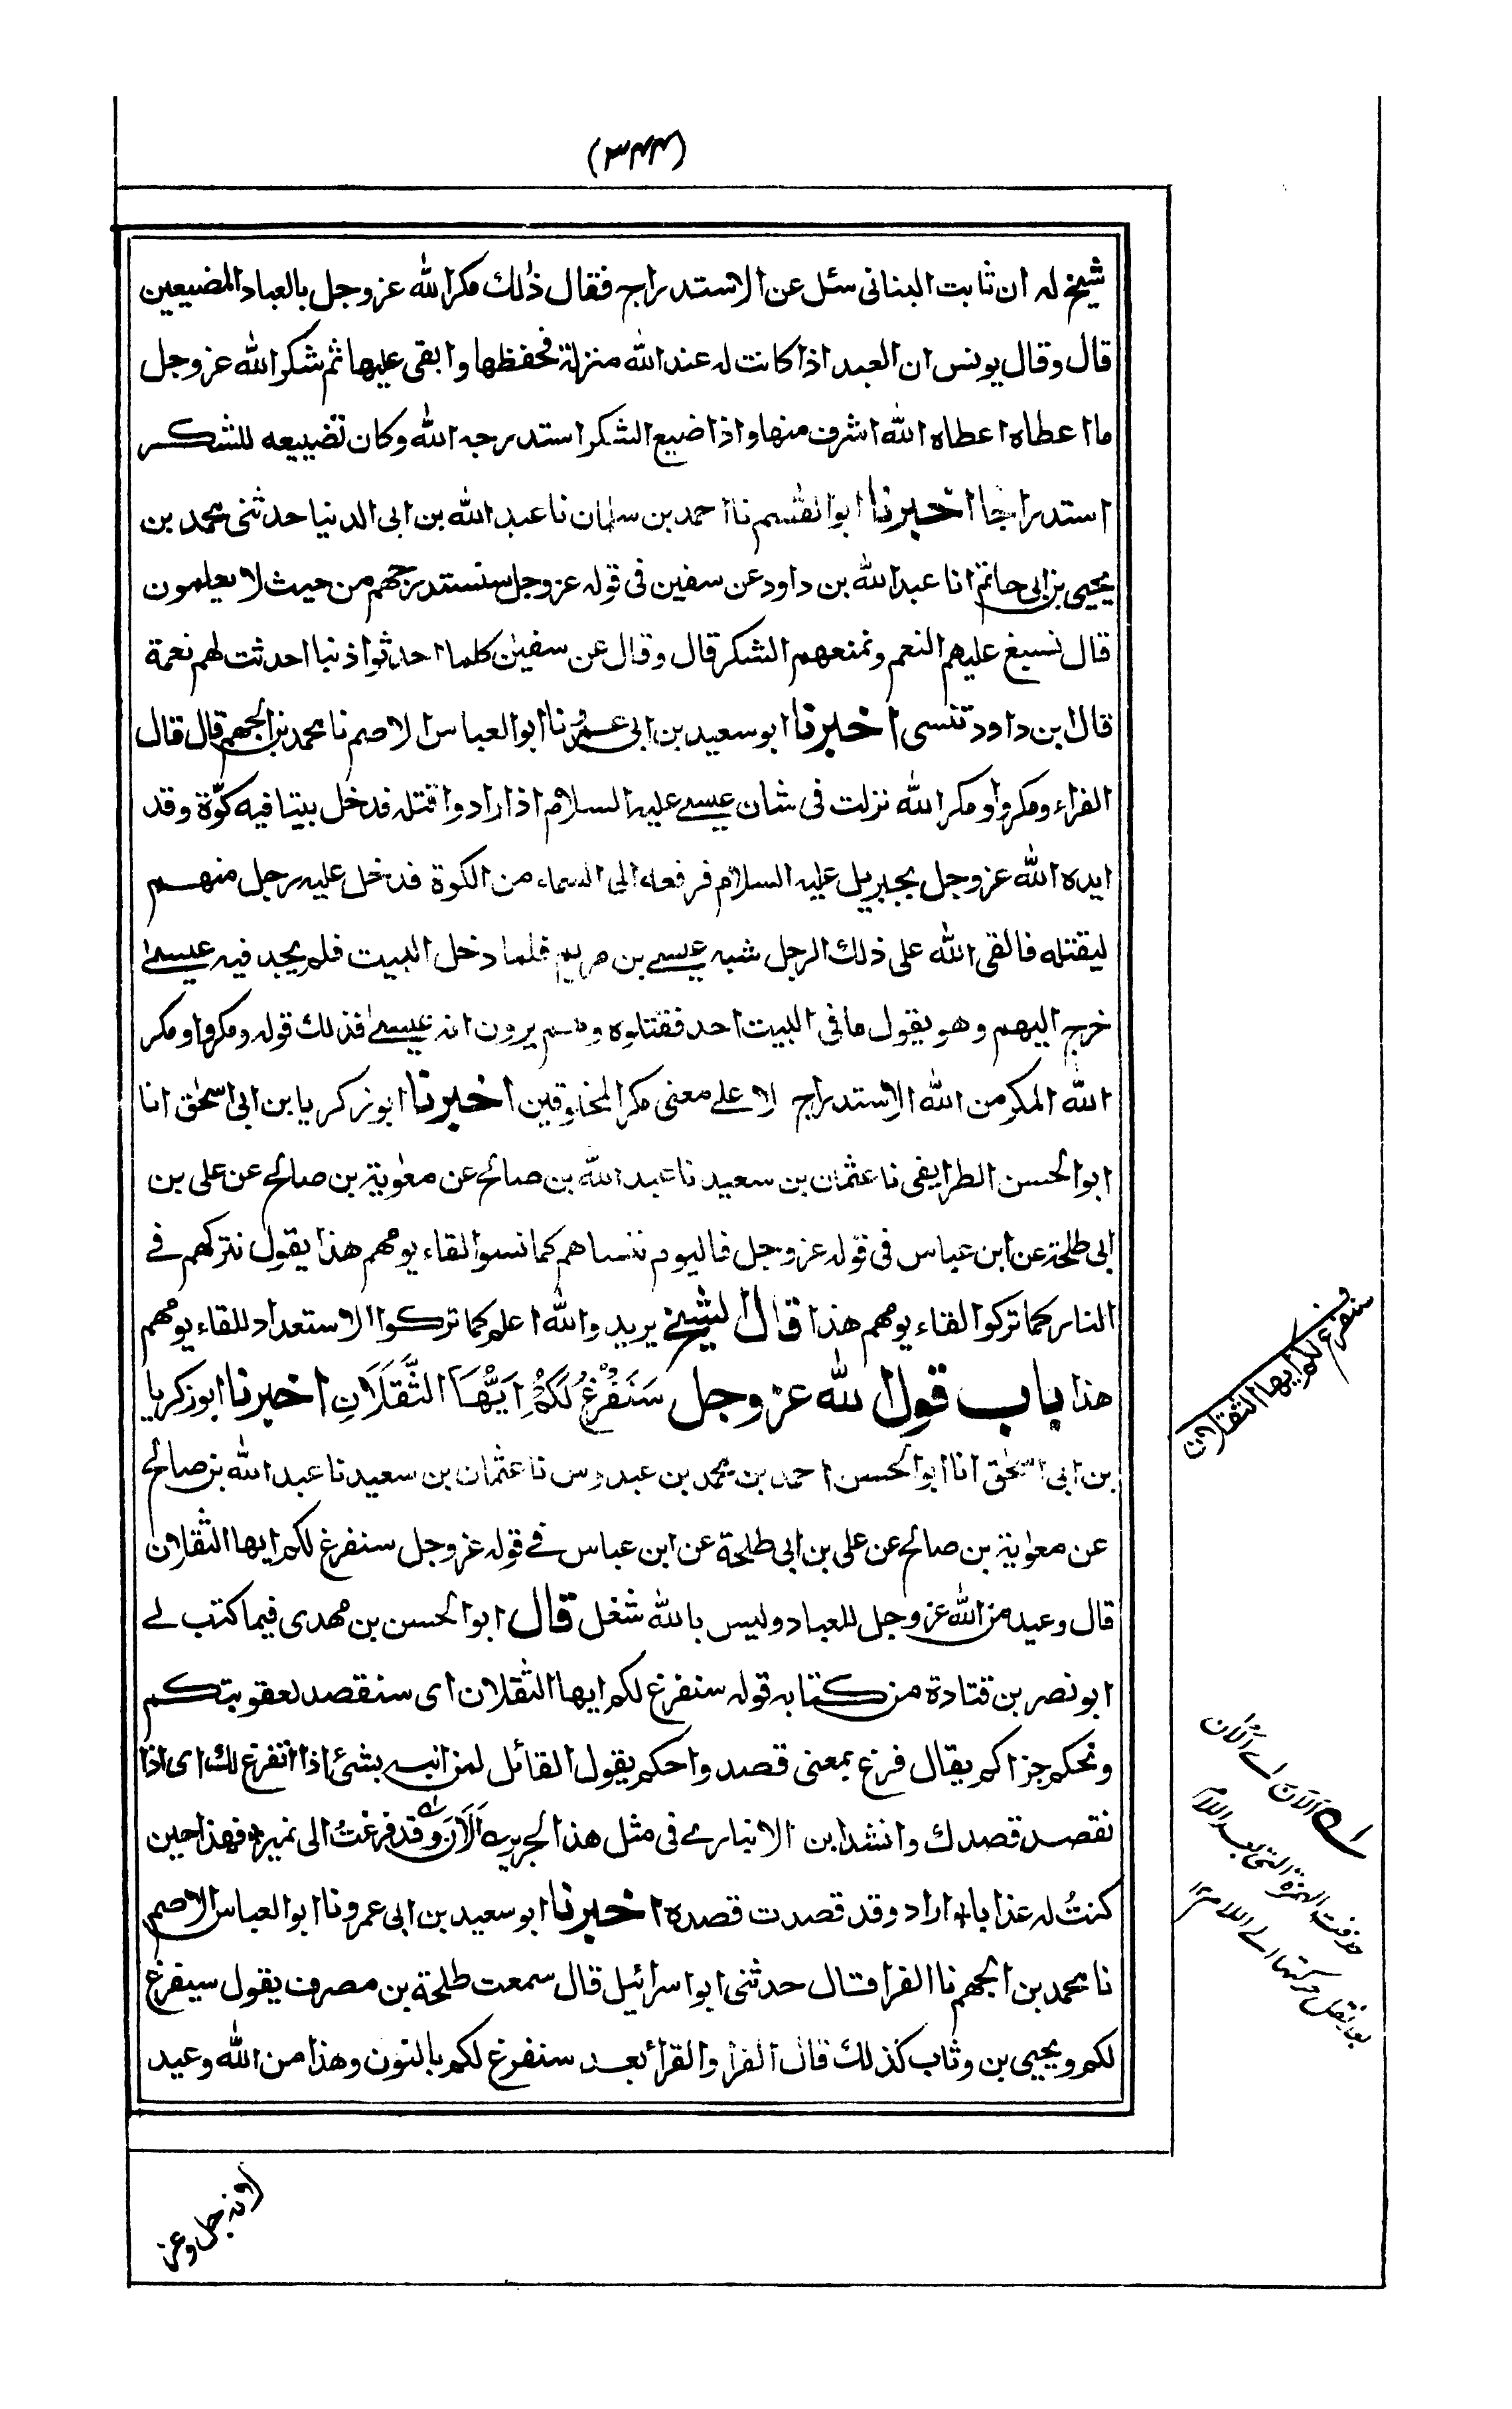 (٣٤٤)
شيخ له ان ثابت البنانى سئل عن الاستدراج فقال ذلك مكر الله عزوجل بالعباد المضيعين
قال وقال يونس ان العبد اذا كانت له عند الله منزلة فحفظها وابقى عليها ثم شكر الله عزوجل
ما اعطاه اعطاه الله اشرف منها واذا ضيع الشكر استدرجه الله وكان تضييعه للشكر
استدراجا اخبرنا ابو القسم نا احمد بن سلمان نا عبد الله بن ابى الدنيا حدثنى محمد بن
يحيى بن ابى حاتم انا عبد الله بن داود عن سفين فى قوله عزوجل سنستدرجهم من حيث لا يعلمون
قال نسبغ عليهم النعم ونمنعهم الشكر قال وقال عن سفين كلما احدثوا ذنبا احدثت لهم نعمة
قال ابن داود تنسى اخبرنا ابو سعيد بن ابى عمرو نا ابو العباس الاصم نا محمد بن الجهم قال قال
الفراء ومكروا ومكر الله نزلت فى شان عيسى عليه السلام اذ ارادوا قتله فدخل بيتا فيه كوّة وقد
ايده الله عزوجل بجبريل عليه السلام فرفعه الى السماء من الكوة فدخل عليه رجل منهم
ليقتله فالقى الله على ذلك الرجل شبه عيسى بن مريم فلما دخل البيت فلم يجد فيه عيسى
خرج اليهم وهو يقول ما فى البيت احد فقتلوه وهم يرون انه عيسى فذلك قوله ومكروا ومكر
الله المكر من الله الاستدراج لا على معنى مكر المخلوقين اخبرنا ابو زكريا بن ابى اسحٰق انا
ابو الحسن الطرايفى نا عثمان بن سعيد نا عبد الله بن صالح عن معوٰية بن صالح عن على بن
ابى طلحة عن ابن عباس فى قوله عزوجل فاليوم ننساهم كما نسوا لقاء يومهم هذا يقول نتركهم فے
النار كما تركوا لقاء يومهم هذا قال الشيخ يريد والله اعلم كما تركوا الاستعداد للقاء يومهم
هذا باب قول الله عزوجل سَنَفْرُغُ لَكُمْ اَيُّهَا الثَّقَلَانِ اخبرنا ابو زكريا
بن ابى اسحٰق انا ابو الحسن احمد بن محمد بن عبدوس نا عثمان بن سعيد نا عبد الله بن صالح
عن معوٰية بن صالح عن على بن ابى طلحة عن ابن عباس فے قوله عزوجل سنفرغ لكم ايها الثقلان
قال وعيد من الله عزوجل للعباد وليس بالله شغل قال ابو الحسن بن مهدى فيما كتب لے
ابو نصر بن قتادة من كتابه قوله سنفرغ لكم ايها الثقلان اى سنقصد لعقوبتكم
ونحكم جزاكم يقال فرغ بمعنى قصد واحكم يقول القائل لمن انبه بشئ اذا اتفرغ لك اى اذا
نقصد قصدك وانشد ابن الانبارے فى مثل هذا الجرير ؎ اَلَاٰنَ وقد فرغتُ الى نمير * فهذا حين
كنتُ له عذابا * اراد وقد قصدت قصده اخبرنا ابو سعيد بن ابى عمرو نا ابو العباس الاصم
نا محمد بن الجهم نا الفرا قال حدثنى ابو اسرائيل قال سمعت طلحة بن مصرف يقول سيفرغ
لكم ويحيى بن وثاب كذلك قال الفرأ والقرأ بعد سنفرغ لكم بالنون وهذا من الله وعيد
سنفرغ لكم ايها الثقلان
اَلَاٰنَ اے اَلْاٰن
حذفت الهمزة التى بعد اللام
بعد نقل حركتها الے اللام ١٢
(لانه جل وعز